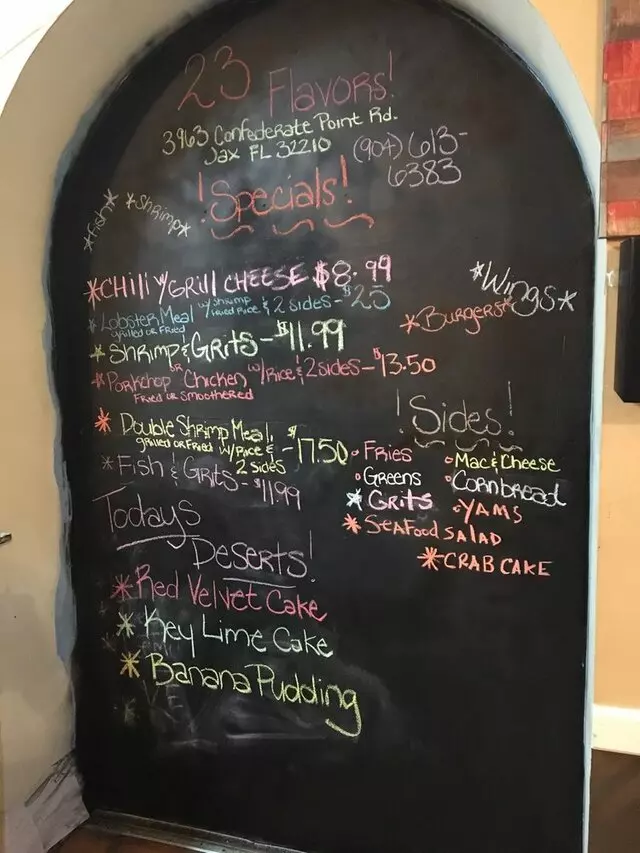 23 Flavors!
3963 Confederate Point Rd.
Jax FL 32210
(904) 613-
6383
*Fish* *Shrimp*
!Specials!
*CHili w/Grill CHEESE $8.99
*Lobster Meal w/shrimp Fried Rice & 2 sides - $25
Grilled or Fried
*Shrimp & Grits - $11.99
*Porkchop or Chicken w/Rice & 2 sides - $13.50
Fried or Smoothered
*Double Shrimp Meal, $17.50
grilled or Fried w/Rice &
2 sides
*Fish & Grits - $11.99
*Wings*
*Burgers*
!Sides!
Fries
Mac & Cheese
Greens
Cornbread
*Grits
YAMS
*SEAFood SALAD
*CRAB CAKE
Todays
Deserts!
*Red Velvet Cake
*Key Lime Cake
*Banana Pudding